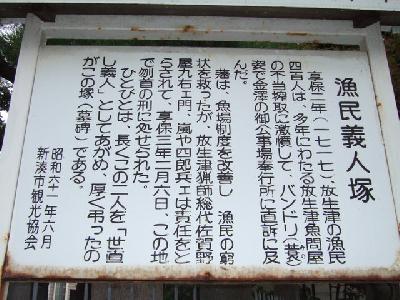 漁民義人塚
享保二年(一七一七)、放生津の漁民
四百人は、多年にわたる放生津魚問屋
の不当搾取に激憤して、バンドリ(蓑)
姿で金澤の御公事場奉行所に直訴に及
んだ。
藩は、魚場制度を改善し 漁民の窮
状を救ったが、放生津猟師総代佐賀野
屋九右エ門、嵐や四郎兵エは責任をと
らされて、享保三年二月六日、この地
で刎首の刑に処せられた。
ひとびとは、長くこの二人を「世直
し義人」としてあがめ、厚く弔ったの
がこの塚(墓碑)である。
昭和六十一年六月
新湊市観光協会